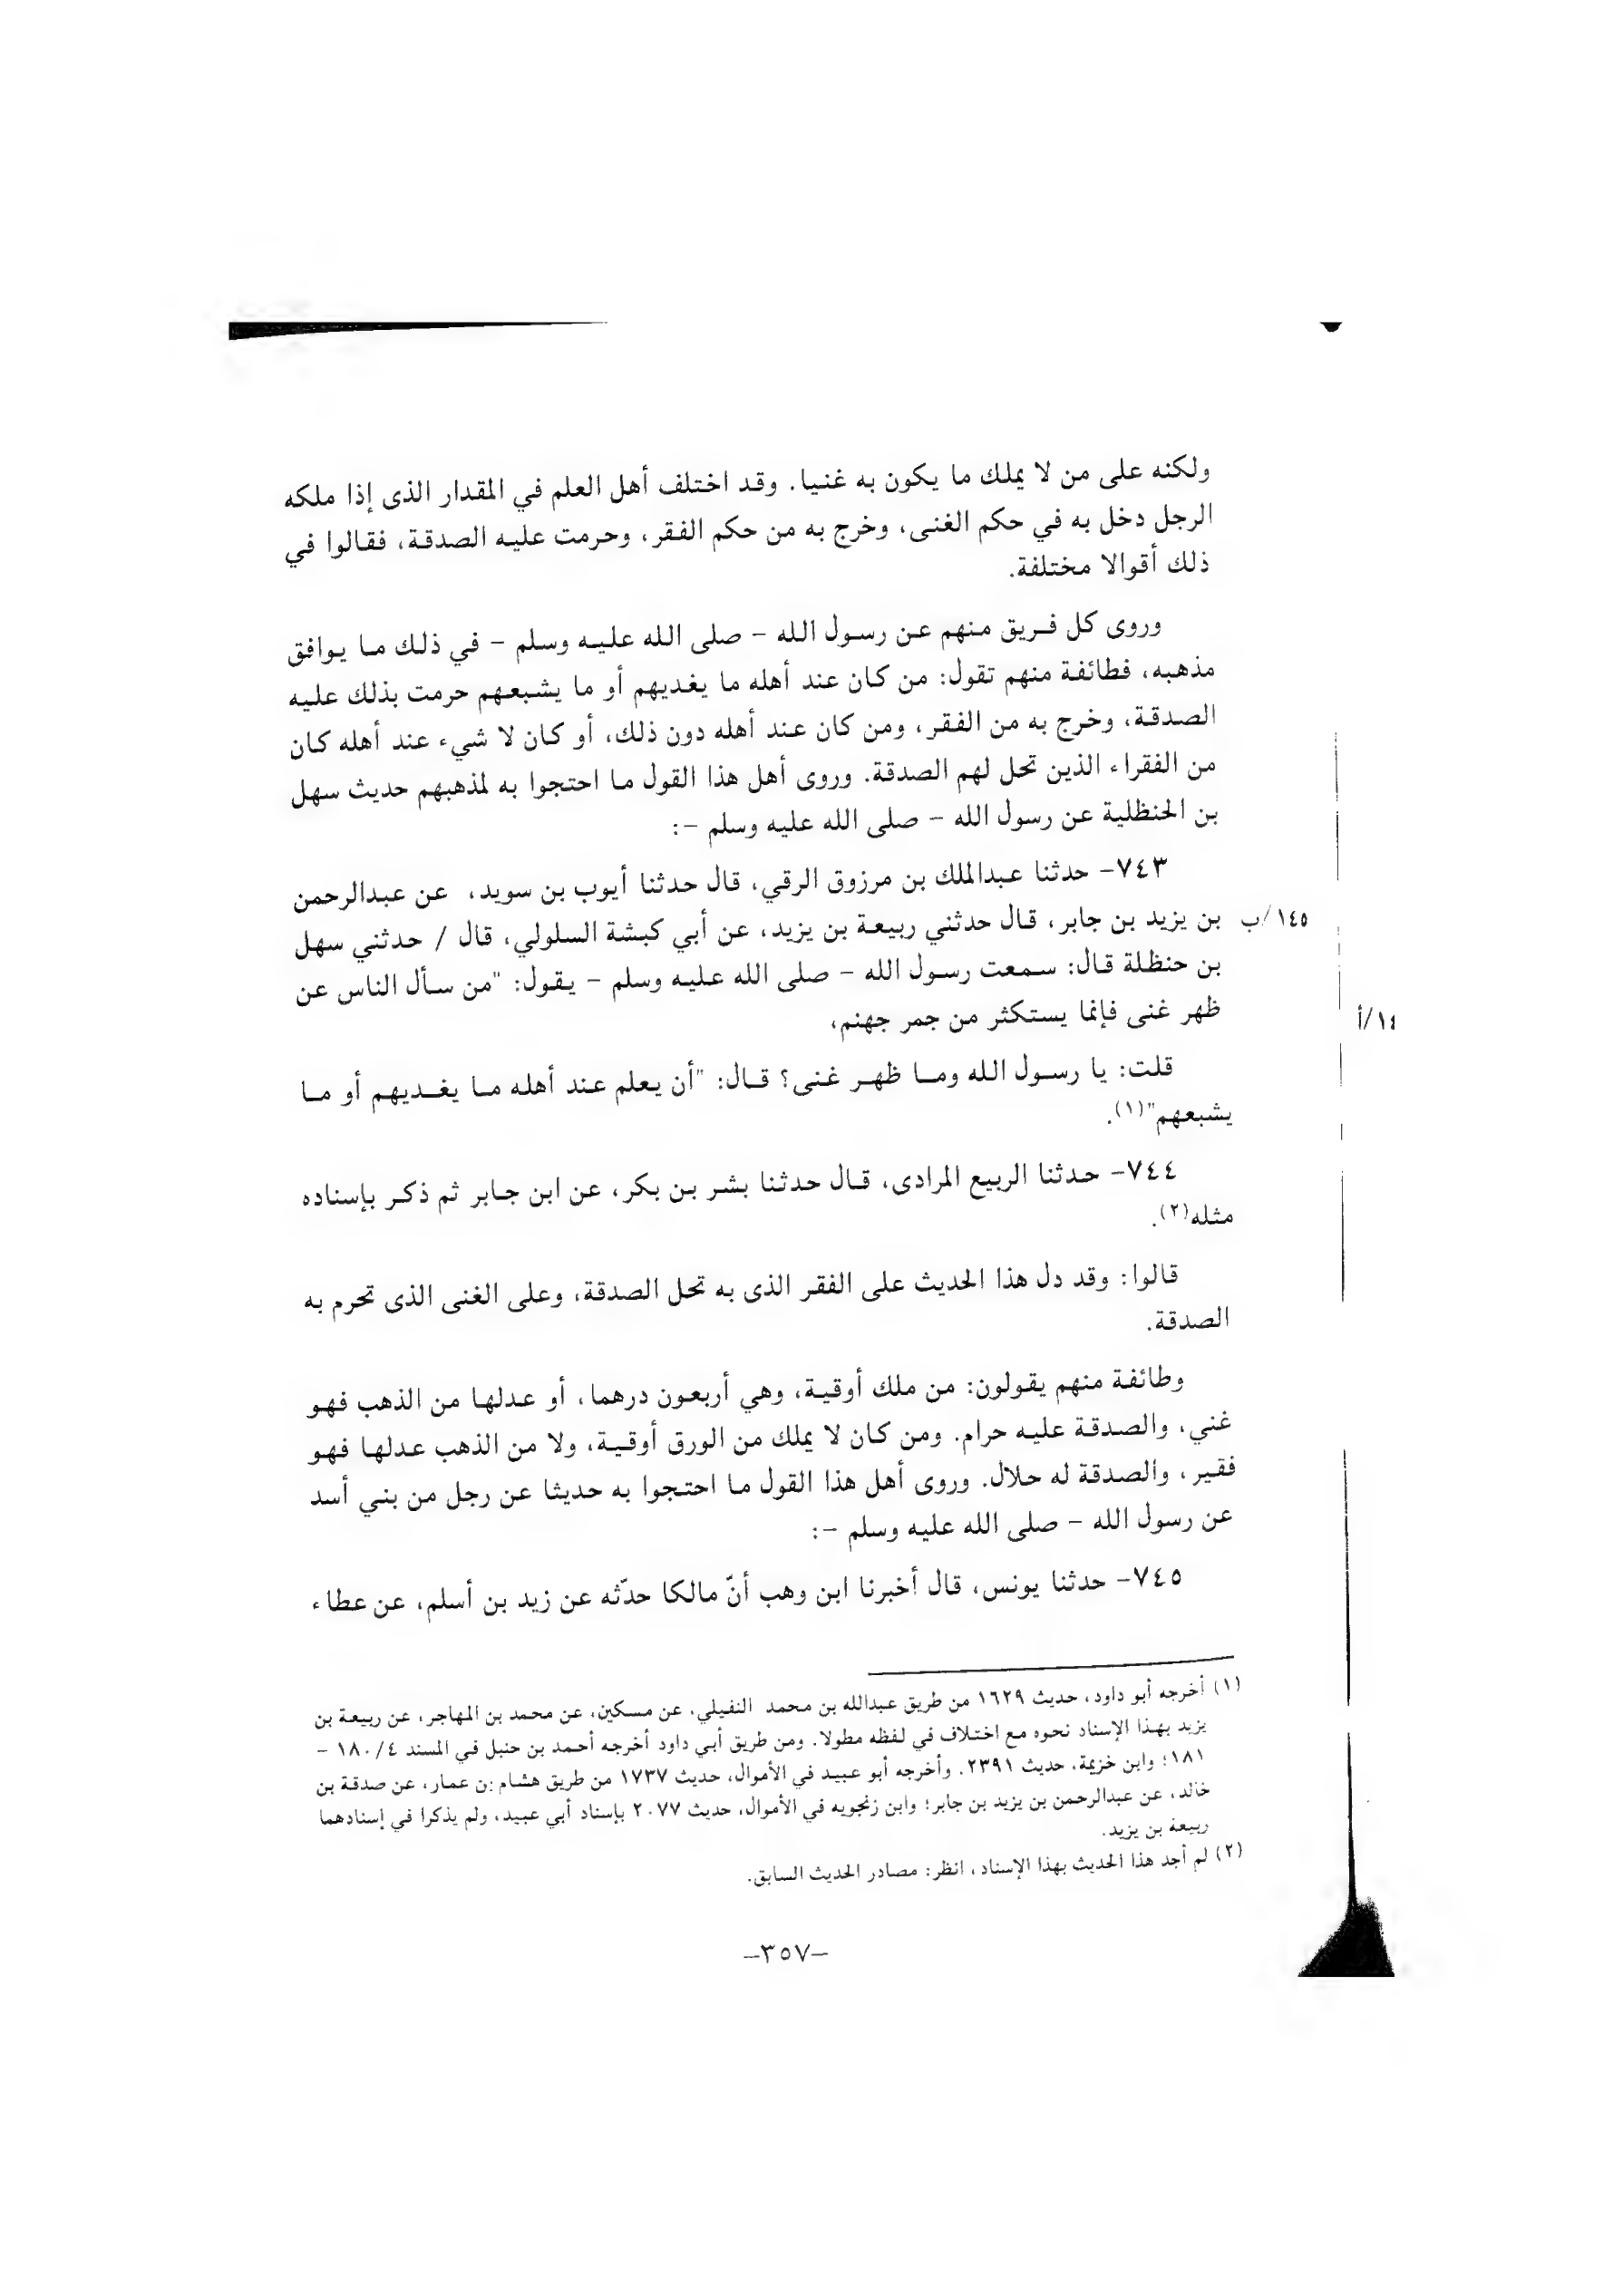 ولكنه على من لا يملك ما يكون به غنيا. وقد اختلف أهل العلم في المقدار الذى إذا ملكه
الرجل دخل به في حكم الغنى، وخرج به من حكم الفقر، وحرمت عليه الصدقة، فقالوا في
ذلك أقوالا مختلفة.
وروى كل فريق منهم عن رسول الله - صلى الله عليه وسلم - في ذلك ما يوافق
مذهبه، فطائفة منهم تقول: من كان عند أهله ما يغديهم أو ما يشبعهم حرمت بذلك عليه
الصدقة، وخرج به من الفقر، ومن كان عند أهله دون ذلك، أو كان لا شيء عند أهله كان
من الفقراء الذين تحل لهم الصدقة. وروى أهل هذا القول ما احتجوا به لمذهبهم حديث سهل
بن الحنظلية عن رسول الله - صلى الله عليه وسلم -:
٧٤٣- حدثنا عبدالملك بن مرزوق الرقي، قال حدثنا أيوب بن سويد، عن عبدالرحمن
١٤٥/ب بن يزيد بن جابر، قال حدثني ربيعة بن يزيد، عن أبي كبشة السلولي، قال / حدثني سهل
بن حنظلة قال: سمعت رسول الله - صلى الله عليه وسلم - يقول: "من سأل الناس عن
ظهر غنى فإنما يستكثر من جمر جهنم،
١٤/أ
قلت: يا رسول الله وما ظهر غنى؟ قال: "أن يعلم عند أهله ما يغديهم أو ما
يشبعهم"(١).
٧٤٤- حدثنا الربيع المرادى، قال حدثنا بشر بن بكر، عن ابن جابر ثم ذكر بإسناده
مثله(٢).
قالوا: وقد دل هذا الحديث على الفقر الذى به تحل الصدقة، وعلى الغنى الذى تحرم به
الصدقة.
وطائفة منهم يقولون: من ملك أوقية، وهي أربعون درهما، أو عدلها من الذهب فهو
غني، والصدقة عليه حرام. ومن كان لا يملك من الورق أوقية، ولا من الذهب عدلها فهو
فقير، والصدقة له حلال. وروى أهل هذا القول ما احتجوا به حديثا عن رجل من بني أسد
عن رسول الله - صلى الله عليه وسلم -:
٧٤٥- حدثنا يونس، قال أخبرنا ابن وهب أنّ مالكا حدّثه عن زيد بن أسلم، عن عطاء
(١) أخرجه أبو داود، حديث ١٦٢٩ من طريق عبدالله بن محمد النفيلي، عن مسكين، عن محمد بن المهاجر، عن ربيعة بن
يزيد بهذا الإسناد نحوه مع اختلاف في لفظه مطولا. ومن طريق أبي داود أخرجه أحمد بن حنبل في المسند ١٨٠/٤ -
١٨١؛ وابن خزيمة، حديث ٢٣٩١. وأخرجه أبو عبيد في الأموال، حديث ١٧٣٧ من طريق هشام بن عمار، عن صدقة بن
خالد، عن عبدالرحمن بن يزيد بن جابر؛ وابن زنجويه في الأموال، حديث ٢٠٧٧ بإسناد أبي عبيد، ولم يذكرا في إسنادهما
ربيعة بن يزيد.
(٢) لم أجد هذا الحديث بهذا الإسناد، انظر: مصادر الحديث السابق.
-٣٥٧-